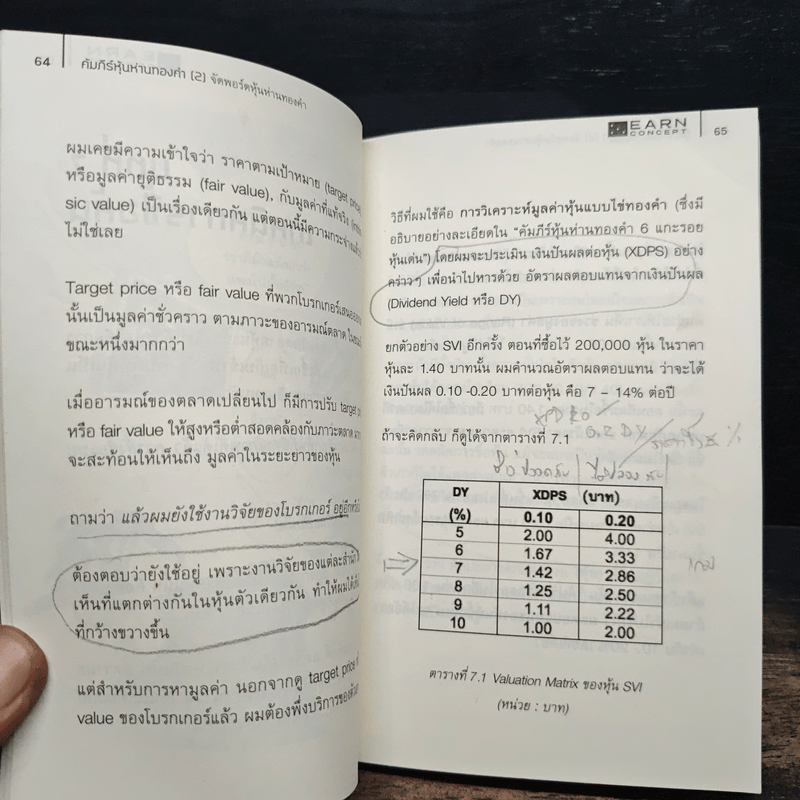 64
คัมภีร์หุ้นห่านทองคำ (2) จัดพอร์ตหุ้นห่านทองคำ
ผมเคยมีความเข้าใจว่า ราคาตามเป้าหมาย (target price)
หรือมูลค่ายุติธรรม (fair value), กับมูลค่าที่แท้จริง
sic value) เป็นเรื่องเดียวกัน แต่ตอนนี้มีความกระจ่างแล้วว่า
ไม่ใช่เลย
Target price หรือ fair value ที่พวกโบรกเกอร์เสนอออกมา
นั้นเป็นมูลค่าชั่วคราว ตามภาวะของอารมณ์ตลาด
ขณะหนึ่งมากกว่า
เมื่ออารมณ์ของตลาดเปลี่ยนไป ก็มีการปรับ target
หรือ fair value ให้สูงหรือต่ำสอดคล้องกับภาวะตลาด
จะสะท้อนให้เห็นถึง มูลค่าในระยะยาวของหุ้น
ถามว่า แล้วผมยังใช้งานวิจัยของโบรกเกอร์ อยู่อีกหรือ
ต้องตอบว่ายังใช้อยู่ เพราะงานวิจัยของแต่ละสำนัก
เห็นที่แตกต่างกันในหุ้นตัวเดียวกัน ทำให้ผมได้
ที่กว้างขวางขึ้น
แต่สำหรับการหามูลค่า นอกจากดู target price
value ของโบรกเกอร์แล้ว ผมต้องพึ่งบริการของ
EARN
CONCEPT
65
วิธีที่ผมใช้คือ การวิเคราะห์มูลค่าหุ้นแบบไข่ทองคำ (ซึ่งมี
อธิบายอย่างละเอียดใน "คัมภีร์หุ้นห่านทองคำ 6 แกะรอย
หุ้นเด่น") โดยผมจะประเมิน เงินปันผลต่อหุ้น (XDPS) อย่าง
คร่าวๆ เพื่อนำไปหารด้วย อัตราผลตอบแทนจากเงินปันผล
(Dividend Yield หรือ DY)
ยกตัวอย่าง SVI อีกครั้ง ตอนที่ซื้อไว้ 200,000 หุ้น ในราคา
หุ้นละ 1.40 บาทนั้น ผมคำนวณอัตราผลตอบแทน ว่าจะได้
เงินปันผล 0.10 -0.20 บาทต่อหุ้น คือ 7 – 14% ต่อปี
ถ้าจะคิดกลับ ก็ดูได้จากตารางที่ 7.1
DY XDPS (บาท)
(%) 0.10 0.20
5 2.00 4.00
6 1.67 3.33
7 1.42 2.86
8 1.25 2.50
9 1.11 2.22
10 1.00 2.00
ตารางที่ 7.1 Valuation Matrix ของหุ้น SVI
(หน่วย : บาท)